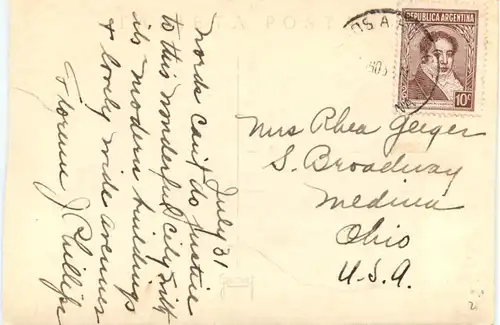 TARJETA POSTAL
REPUBLICA ARGENTINA
10c
July 31
Words can't do justice
to this wonderful city with
its modern buildings
& lovely wide avenues
J Phillips
Mrs Rhea Geiger
S. Broadway
Medina
Ohio
U.S.A.